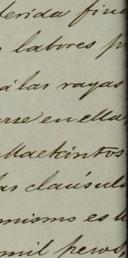 erida fin
labores p
á las rayas
arse en ella
Mackintos
as clausul
anismo es
mil pesos,